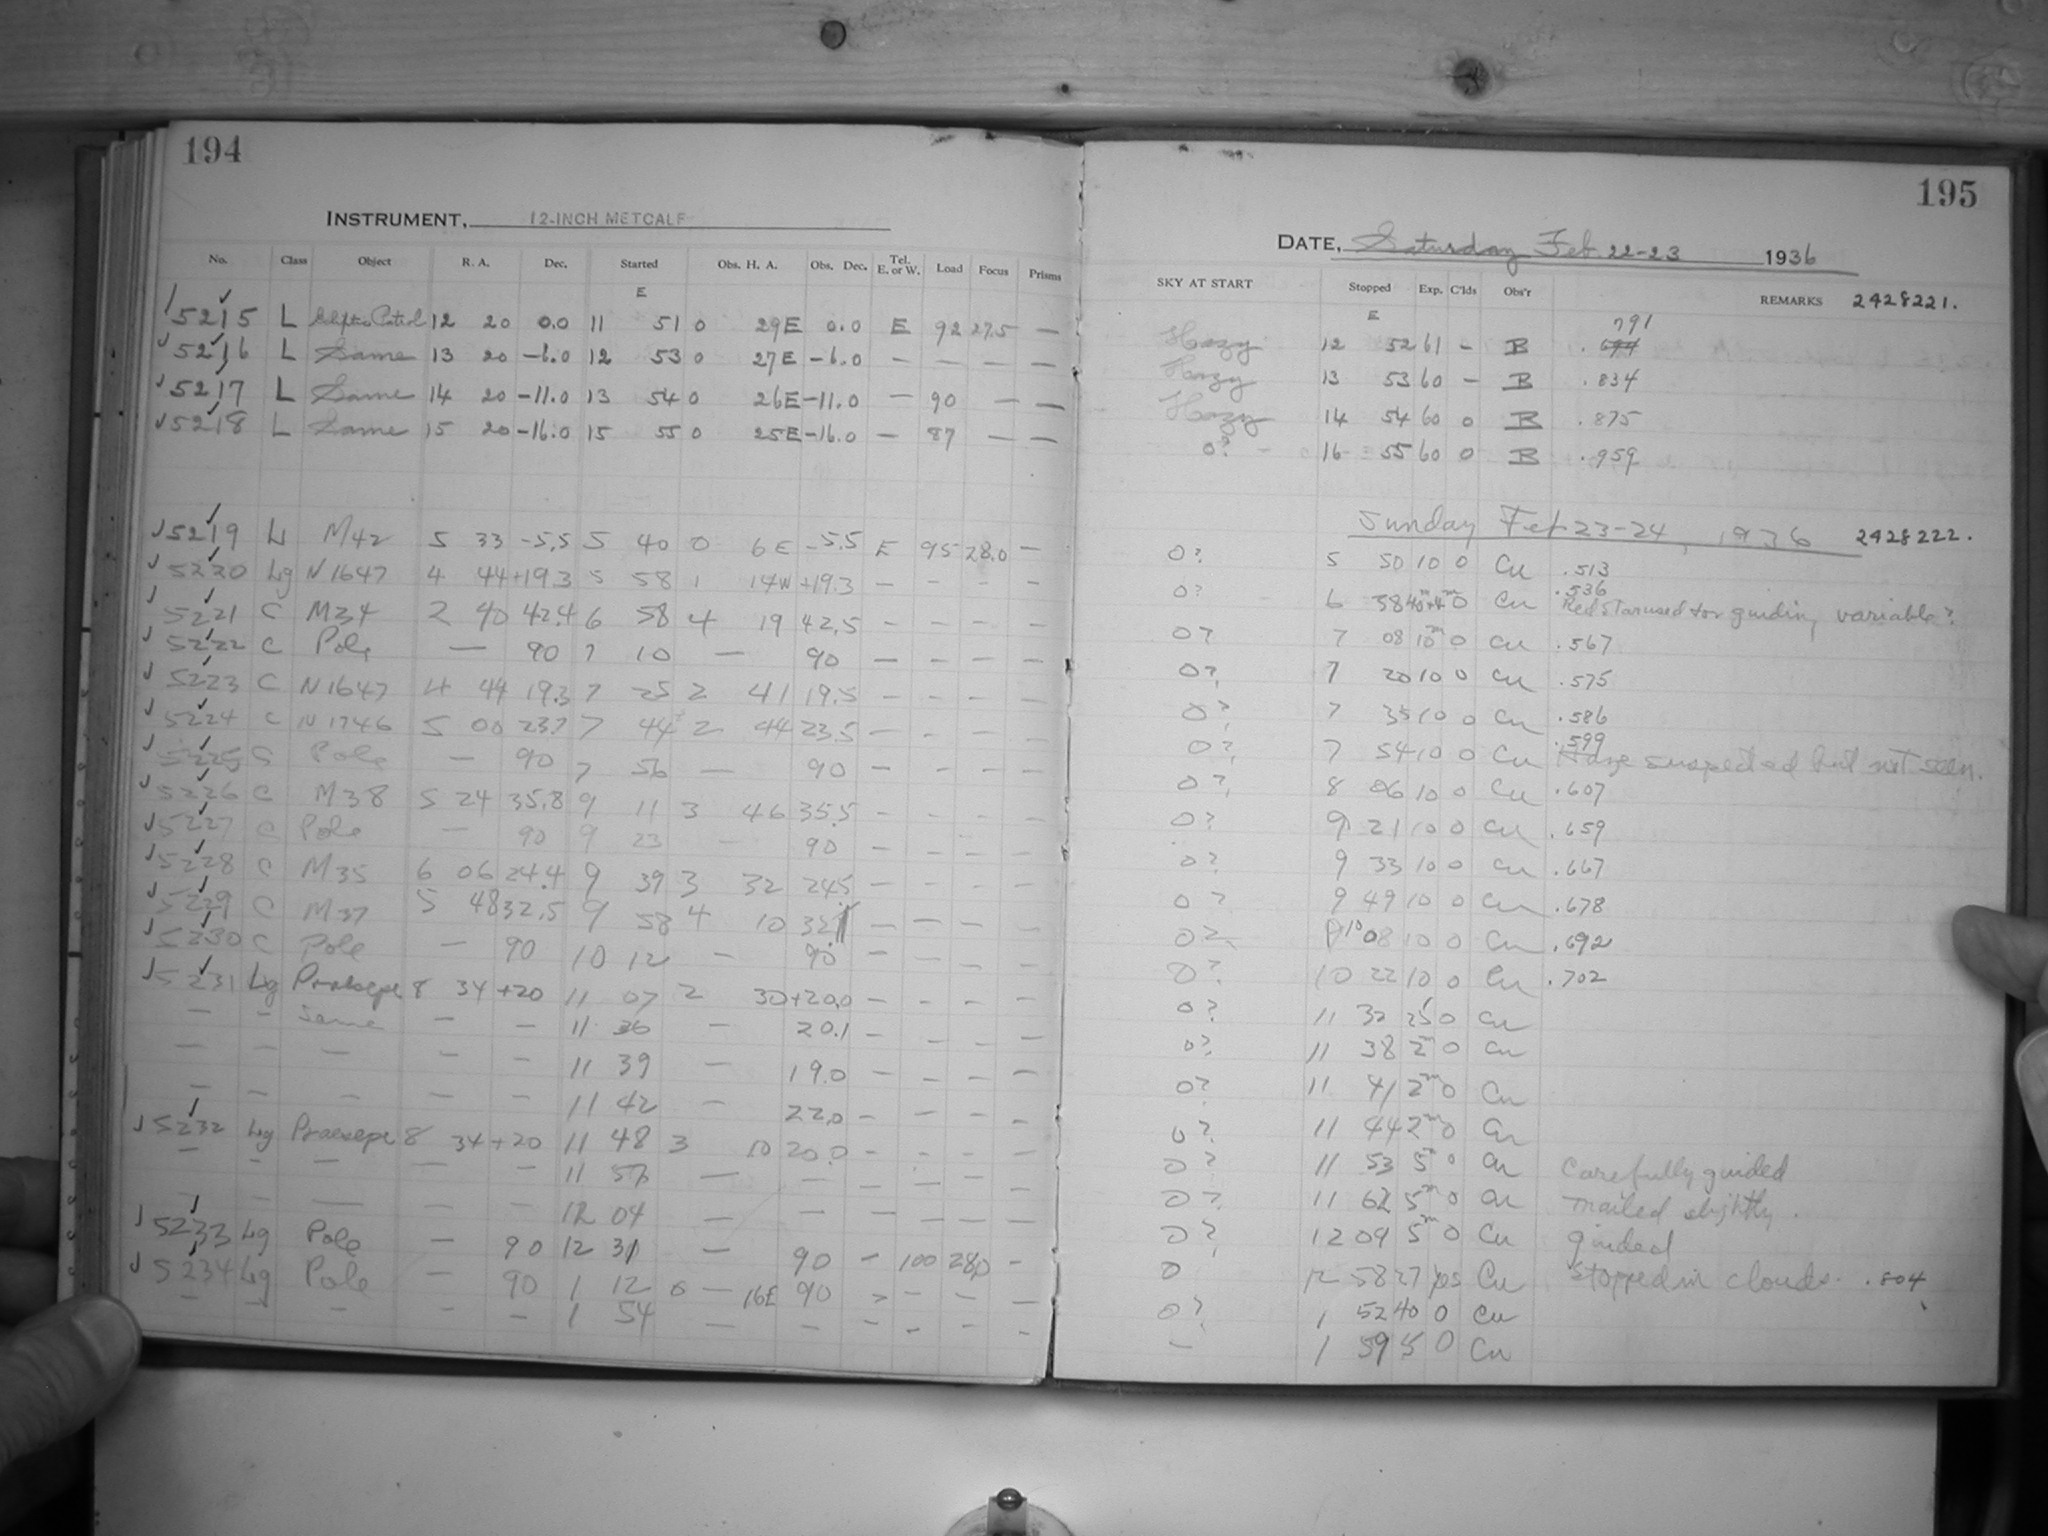 194
INSTRUMENT, 12-INCH METCALF
No. Class Object R. A. Dec. Started Obs. H. A. Obs. Dec. Tel. E. or W. Load Focus Prisms
E
5215 L Patrol 12 20 0.0 11 51 0 29E 0.0 E 92 27.5 —
5216 L Same 13 20 -6.0 12 53 0 27E -6.0 — — — —
5217 L Same 14 20 -11.0 13 54 0 26E -11.0 — 90 — —
5218 L Same 15 20 -16.0 15 55 0 25E -16.0 — 87 — —
5219 L M42 5 33 -5.5 5 40 0 6E -5.5 E 95 28.0 —
5220 Lg N1647 4 44 +19.3 5 58 1 14W +19.3 — — — —
5221 C M34 2 40 42.4 6 58 4 19 42.5 — — — —
5222 C Pole — 90 7 10 — 90 — — — —
5223 C N1647 4 44 19.3 7 25 2 41 19.5 — — — —
5224 C N1746 5 00 23.7 7 44 2 44 23.5 — — — —
5225 C Pole — 90 7 56 — 90 — — — —
5226 C M38 5 24 35.8 9 11 3 46 35.5 — — — —
5227 C Pole — 90 9 23 — 90 — — — —
5228 C M35 6 06 24.4 9 39 3 32 24.5 — — — —
5229 C M37 5 48 32.5 9 58 4 10 32 — — — —
5230 C Pole — 90 10 12 — 90 — — — —
5231 Lg Praesepe 8 34 +20 11 07 2 30 +20.0 — — — —
— — Same — — 11 36 — 20.1 — — — —
— — — — — 11 39 — 19.0 — — — —
— — — — — 11 42 — 22.0 — — — —
5232 Lg Praesepe 8 34 +20 11 48 3 10 20.0 — — — —
— — — — — 11 57 — — — — — —
— — — — — 12 04 — — — — — —
5233 Lg Pole — 90 12 31 — 90 — 100 28.0 —
5234 Lg Pole — 90 1 12 0 — 16E 90 — — — —
— — — — — 1 54 — — — — — —
195
DATE, Saturday Feb. 22-23 1936
SKY AT START Stopped Exp. C'lds Obs'r REMARKS 2428221.
E
Hazy 12 52 61 — B .791
Hazy 13 53 60 — B .834
Hazy 14 54 60 0 B .875
0? 16 55 60 0 B .959
Sunday Feb 23-24, 1936 2428222.
0? 5 50 10 0 Cu .513
.536
0? 6 38 40m+4m 0 Cu Red Star used for guiding variable?
0? 7 08 10m 0 Cu .567
0? 7 20 10 0 Cu .575
0? 7 35 10 0 Cu .586
.599
0? 7 54 10 0 Cu Haze suspected but not seen.
0? 8 06 10 0 Cu .607
0? 9 21 10 0 Cu .659
0? 9 33 10 0 Cu .667
0? 9 49 10 0 Cu .678
0? 10 08 10 0 Cu .692
0? 10 22 10 0 Cu .702
0? 11 32 25 0 Cu
0? 11 38 2m 0 Cu
0? 11 41 2m 0 Cu
0? 11 44 2m 0 Cu
0? 11 53 5m 0 Cu Carefully guided
0? 11 62 5m 0 Cu slightly.
0? 12 09 5m 0 Cu guided
0 12 58 27 yes Cu Stopped in clouds. .804
0? 1 52 40 0 Cu
— 1 59 5 0 Cu